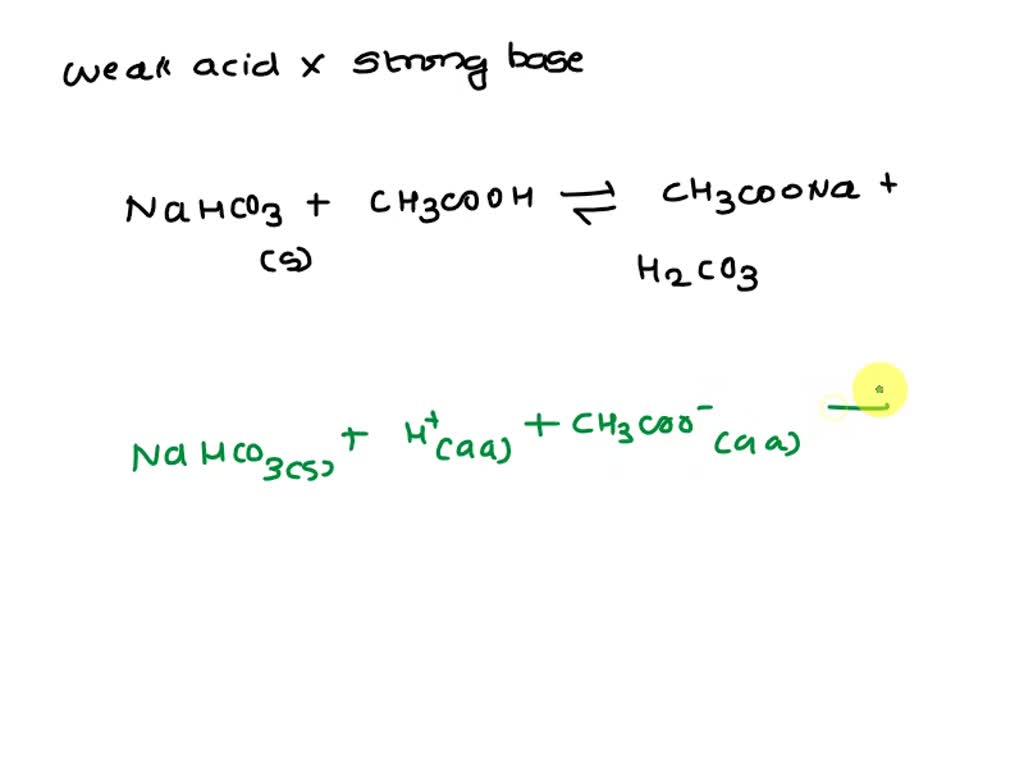 weak acid x strong base
NaHCO3 + CH3COOH ⇌ CH3COONa +
(s) H2CO3
NaHCO3(s) + H+(aq) + CH3COO-(aq)